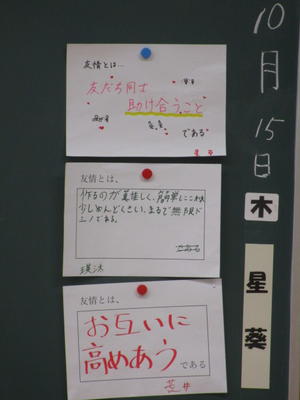 友情とは…
友だち同士
助け合うこと
である
友情とは、
作るのが難しく、簡単にこわれ
少しめんどくさい、まるで無限ド
ミノである。
瑛汰
友情とは、
お互いに
高めあう
である
10月15日
木
星
葵